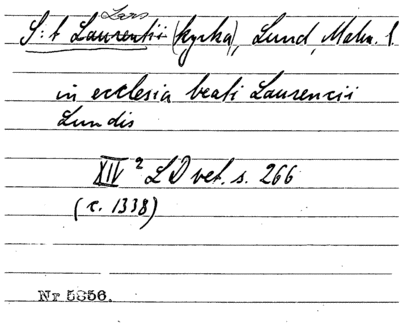 Lars
S:t Laurentii (kyrka), Lund, Malm. l.
in ecclesia beati Laurencii
Lundis
XIV² LD vet. s. 266
(c. 1338)
Nr 5856.